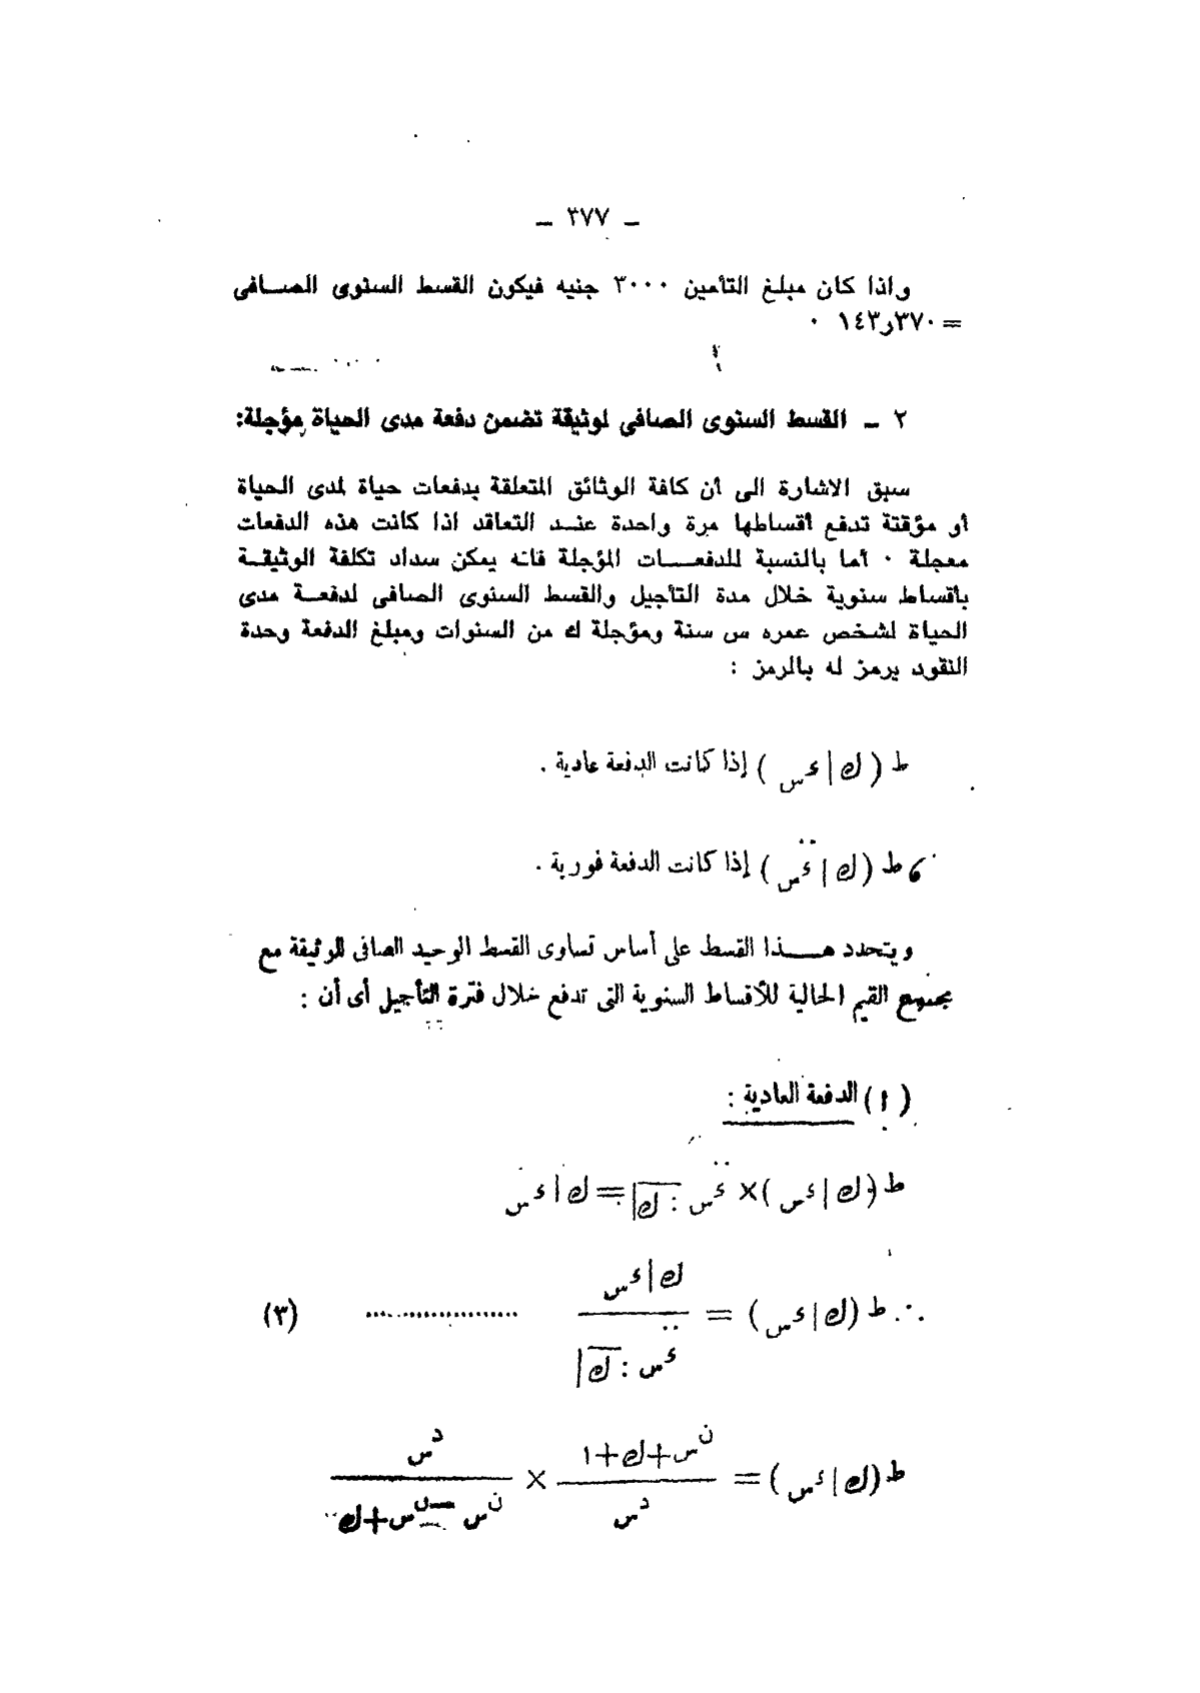 ـ ٣٧٧ ـ
واذا كان مبلغ التأمين ٣٠٠٠ جنيه فيكون القسط السنوى الصافى
= ٣٧٠ر١٤٣ ٠
٢ ـ القسط السنوى الصافى لوثيقة تضمن دفعة مدى الحياة مؤجلة:
سبق الاشارة الى أن كافة الوثائق المتعلقة بدفعات حياة لمدى الحياة
أو مؤقتة تدفع أقساطها مرة واحدة عند التعاقد اذا كانت هذه الدفعات
معجلة ٠ أما بالنسبة للدفعات المؤجلة فانه يمكن سداد تكلفة الوثيقة
باقساط سنوية خلال مدة التأجيل والقسط السنوى الصافى لدفعة مدى
الحياة لشخص عمره س سنة ومؤجلة ك من السنوات ومبلغ الدفعة وحدة
النقود يرمز له بالرمز :
ط ( ك | ء س ) إذا كانت الدفعة عادية .
، ط ( ك | ءَ̈ س ) إذا كانت الدفعة فورية .
ويتحدد هذا القسط على أساس تساوى القسط الوحيد الصافى للوثيقة مع
مجموع القيم الحالية للأقساط السنوية التى تدفع خلال فترة التأجيل أى أن :
( ١ ) الدفعة العادية :
ط ( ك | ء س ) × ء̈ س : ك| = ك | ء س
∴ ط ( ك | ء س ) = ك | ء س / ء̈ س : ك| .................... (٣)
ط ( ك | ء س ) = ن س+ك+١ / د س × د س / ن س – ن س+ك